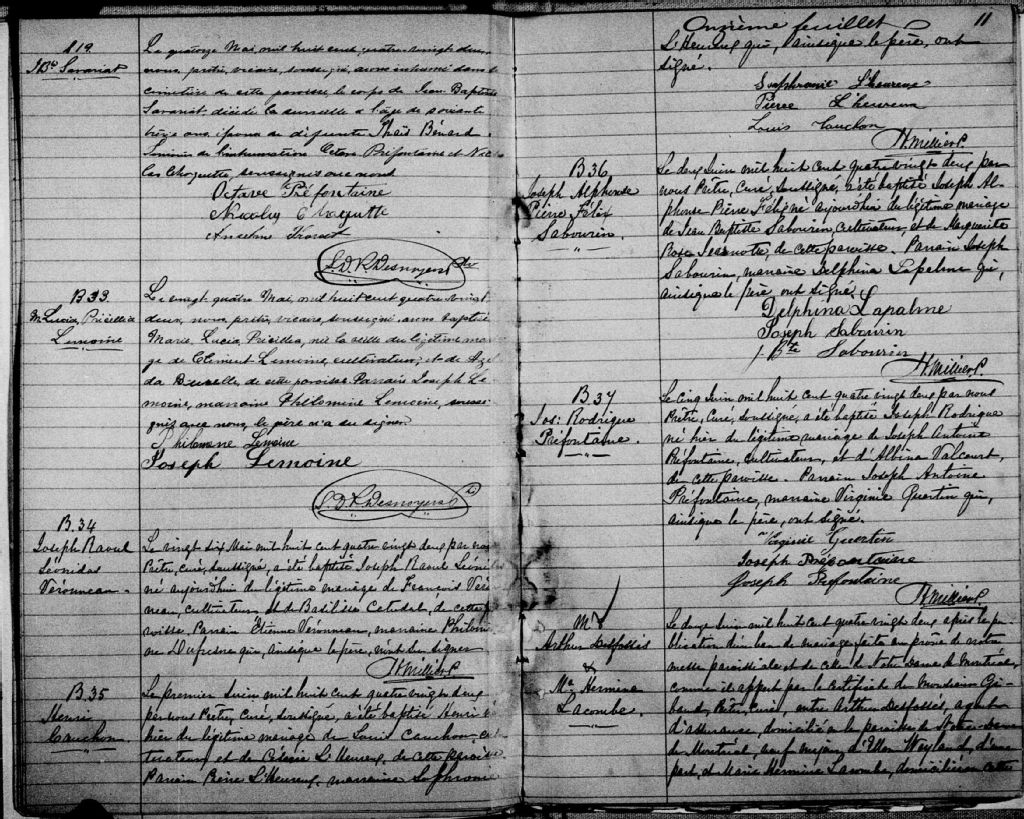 S 19.
J Bte Savariat
Le quatorze Mai, mil huit cent quatre-vingt deux,
nous, prêtre, vicaire, soussigné, avons inhumé dans le
cimetière de cette paroisse le corps de Jean Baptiste
Savariat décédé la surveille à l'âge de soixante
treize ans, époux de défunte Bénard.
Témoins de l'inhumation Octave Préfontaine et Nico
las Choquette, soussignés avec nous
Octave Préfontaine
Nicolas Choquette
Anselme
L. D. R. Desnoyers
B. 33
M. Lucia, Priscilla
Lemoine
Le vingt quatre Mai, mil huit cent quatre-vingt
deux, nous, prêtre, vicaire, soussigné avons baptisé
Marie, Lucia Priscilla, née la veille du légitime maria
ge de Clement Lemoine, cultivateur, et de
de cette paroisse Parrain Joseph Le
moine, marraine Philomène Lemoine, soussi
gnés avec nous, le père n'a su signer
Philomene Lemoine
Joseph Lemoine
L. D. R. Desnoyers
B. 34
Joseph Raoul
Léonidas
Véronneau.
Le vingt six Mai mil huit cent quatre vingt deux par nous
Prêtre, Curé, soussigné, a été baptisé Joseph Raoul Léonidas
né aujourd'hui du légitime mariage de François Véron
neau, cultivateur et de Basilisse de cette
roisse. Parrain Etienne Véronneau, marraine Philomè
ne Dufresne qui, ainsique le père, n'ont su signer
H. Millier P.
B. 35
Henri
Cauchon
Le premier Juin mil huit cent quatre vingt deux
par nous Prêtre, Curé, soussigné, a été baptisé Henri
hier du légitime mariage de Louis Cauchon, cul
tivateur, et de Célénie L'Heureux, de cette paroisse
Parrain Pierre L'Heureux, marraine Sophronie
Onzième feuillet
11
L'Heureux qui, ainsique le père, ont
signé.
Sophronie L'heureux
Pierre L'heureux
Louis Cauchon
H. Millier P.
B 36
Joseph Alphonse
Pierre Félix
Sabourin.
Le deux Juin mil huit cent quatre vingt deux par
nous Prêtre, Curé, soussigné, a été baptisé Joseph Al-
phonse Pierre Félix né aujourd'hui du légitime mariage
de Jean Baptiste Sabourin, cultivateur, et de Marguerite
Rose Jeannotte, de cette paroisse. Parrain Joseph
Sabourin, marraine Delphina Lapalme qui,
ainsique le père ont signé.
Delphina Lapalme
Joseph Sabourin
J. Bte Sabourin
H. Millier P.
B. 37
Jos: Rodrigue
Préfontaine.
Le cinq Juin mil huit cent quatre vingt deux par nous
Prêtre, Curé, soussigné, a été baptisé Joseph Rodrigue
né hier du légitime mariage de Joseph Antoine
Préfontaine, cultivateur, et d'Albina Valcourt,
de cette paroisse. Parrain Joseph Antoine
Préfontaine, marraine Virginie Guertin qui,
ainsique le père, ont signé.
Virginie Guertin
Joseph Préfontaine
Joseph Prefontaine
H. Millier P.
M
Arthur Desfossés
&
Me Hermine
Lacombe.
Le douze Juin mil huit cent quatre vingt deux après la pu
blication d'un ban de mariage faite au prône de notre
messe paroissiale et de celle de Notre Dame de Montréal,
comme il appert par le certificat de Monsieur Gi
band, Prêtre, Curé, entre Arthur Desfossés, agent
d'assurance, domicilié en la paroisse de Notre-Dame
de Montréal, d'Ellen Weyland, d'une
part, et Marie Hermine Lacombe, domiciliée en cette